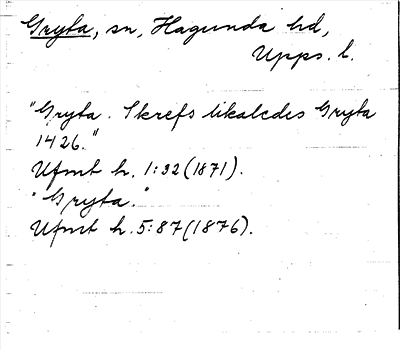 Gryta, sn, Hagunda hd,
Upps. l.
"Gryta. Skrefs likaledes Gryta
1426."
Ufmt h. 1:32 (1871).
"Gryta."
Ufmt h. 5:87 (1876).